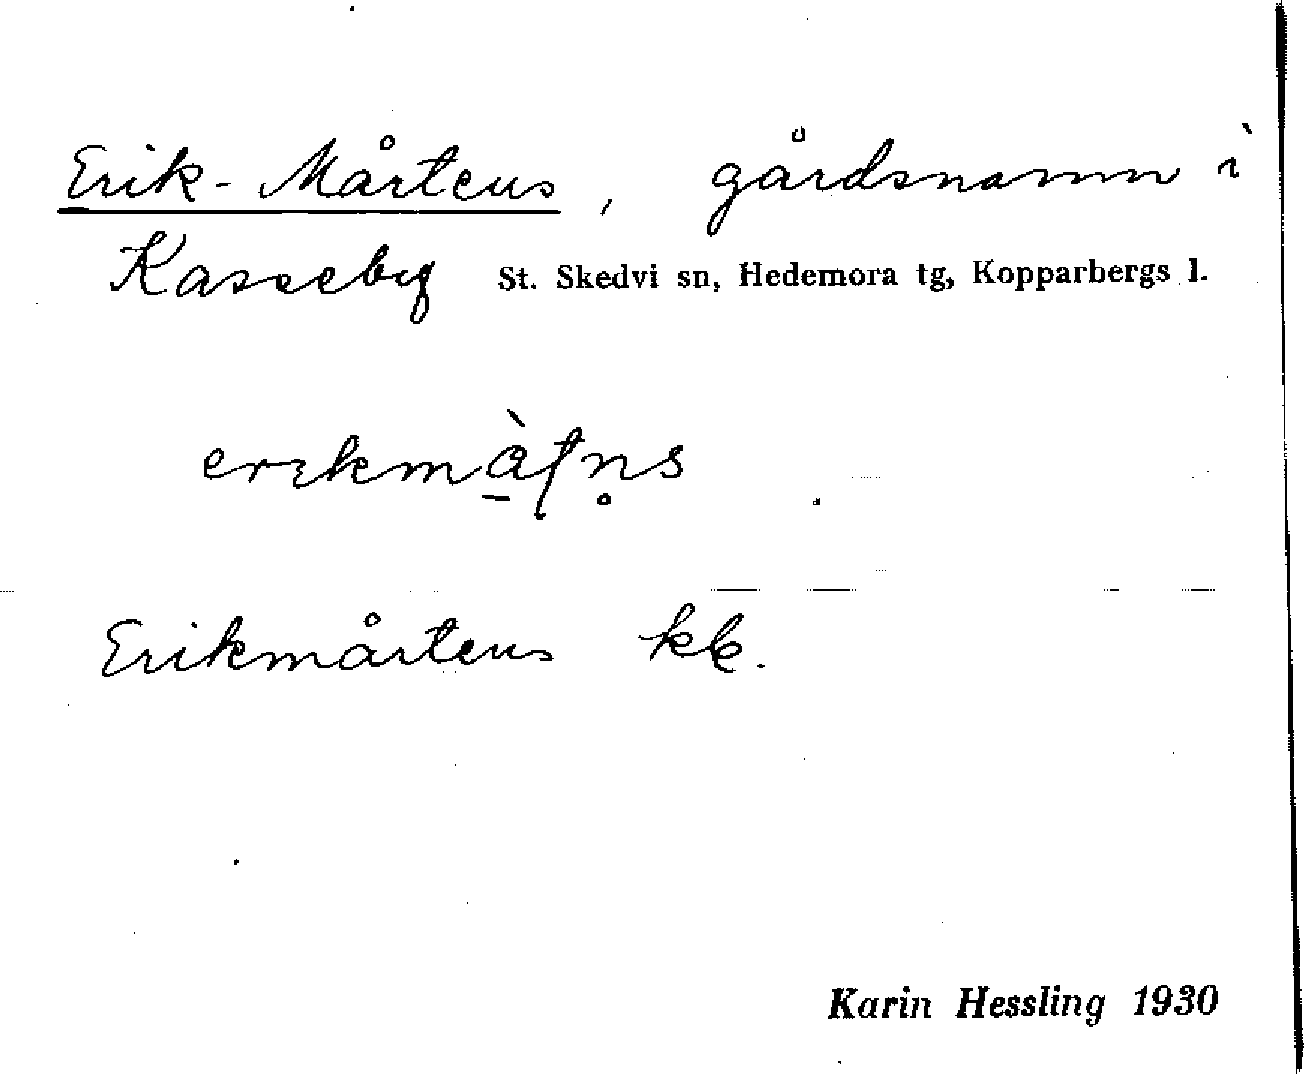 Erik-Mårtens, gårdsnamn i
Kasseby St. Skedvi sn, Hedemora tg, Kopparbergs l.
Erikmårtens kk.
Karin Hessling 1930